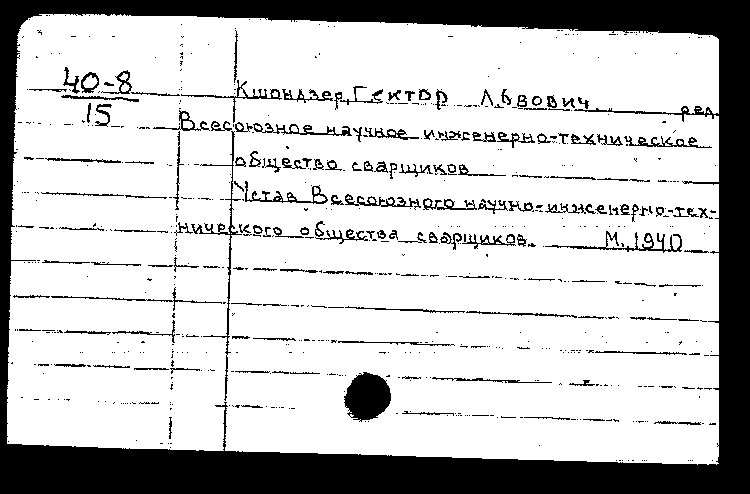 40-8
15
Кшондзер, Гектор Львович ред.
Всесоюзное научное инженерно-техническое
общество сварщиков
Устав Всесоюзного научно-инженерно-тех-
нического общества сварщиков. М., 1940